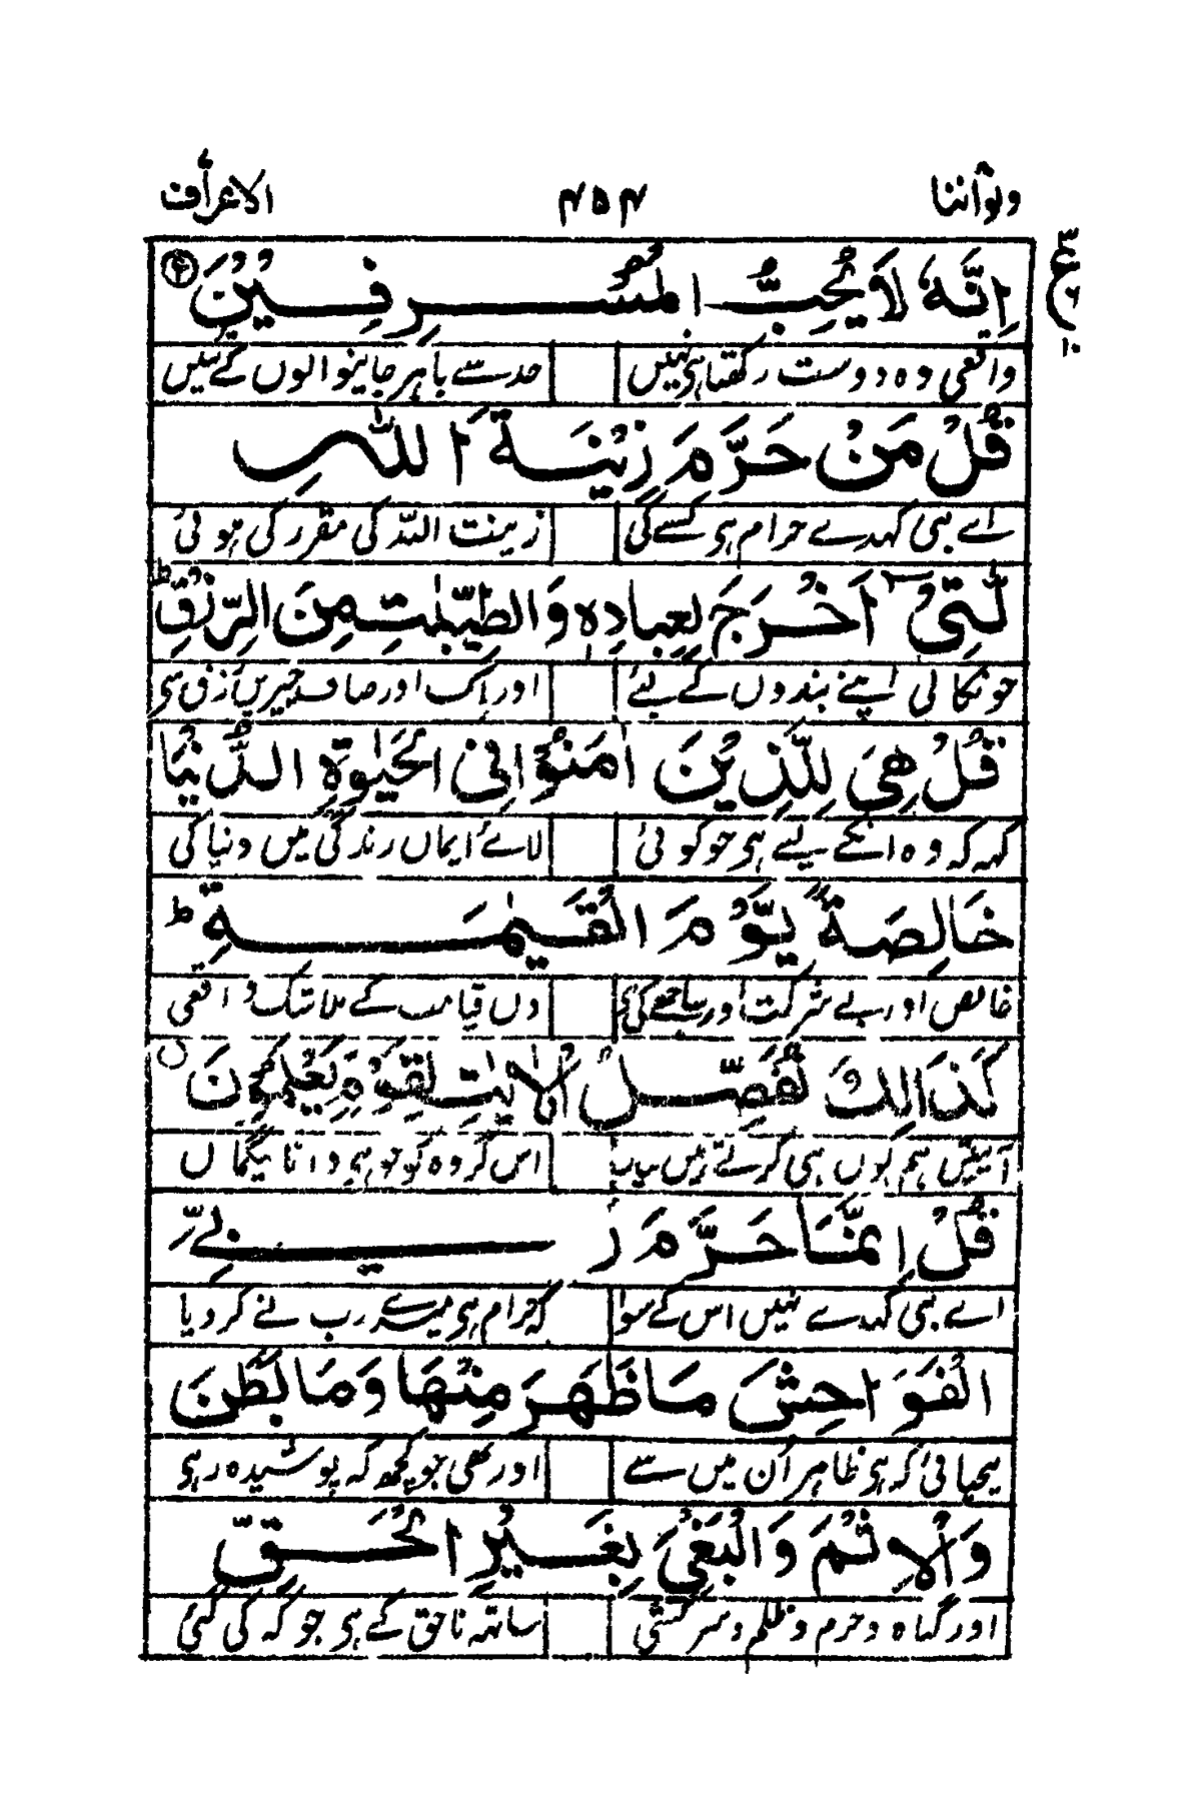 ولواننا ۴۵۴ الاعراف
اِنَّهٗ لَا يُحِبُّ الْمُسْرِفِيْنَ
واقعی وہ دوست رکھتا ہی نہیں حد سے باہر جاینوالوں کے تئیں
قُلْ مَنْ حَرَّمَ زِيْنَةَ اللّٰهِ
اے نبی کہدے حرام ہی کسے کی زینت اللہ کی مقرر کی ہوئی
لَّتِیْۤ اَخْرَجَ لِعِبَادِهٖ وَالطَّيِّبٰتِ مِنَ الرِّزْقِ ؕ
جو نکالی اپنے بندوں کے لئے اور پاک اور صاف چیزیں رزق سی
قُلْ هِیَ لِلَّذِيْنَ اٰمَنُوْا فِی الْحَيٰوةِ الدُّنْيَا
کہہ کہ وہ انکے لیے ہی جو کوئی لائے ایماں زندگی میں دنیا کی
خَالِصَةً يَّوْمَ الْقِيٰمَةِ ؕ
خالص اور بے شرکت اور دن قیامت کے واقعی
كَذَالِكَ نُفَصِّلُ الْاٰيٰتِ لِقَوْمٍ يَّعْلَمُوْنَ
آیتیں ہم یوں ہی کرتے ہیں بیاں اس گروہ کو جو ہی دانا
قُلْ اِنَّمَا حَرَّمَ رَبِّیَ
اے نبی کہدے نہیں اس کے سوا کہ حرام ہی میرے رب نے کر دیا
الْفَوَاحِشَ مَا ظَهَرَ مِنْهَا وَمَا بَطَنَ
بیحیائی کہ ہی ظاہر اُن میں سے اور بھی جو کچھ کہ پوشیدہ رہی
وَالْاِثْمَ وَالْبَغْیَ بِغَيْرِ الْحَقِّ
اور گناہ و جرم و ظلم و سرکشی ساتھ ناحق کے ہی جو کہ کی گئی